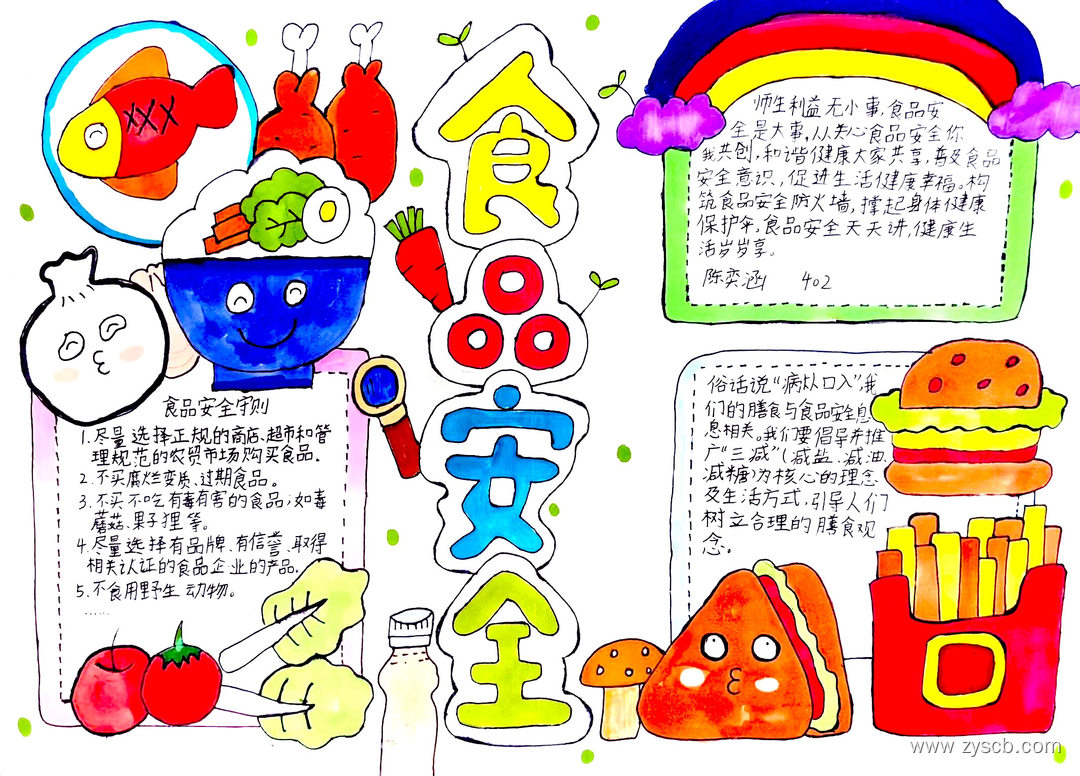 食品安全
食品安全守则
1. 尽量选择正规的商店、超市和管
理规范的农贸市场购买食品。
2. 不买腐烂变质、过期食品。
3. 不买不吃有毒有害的食品，如毒
蘑菇、果子狸等。
4. 尽量选择有品牌、有信誉、取得
相关认证的食品企业的产品。
5. 不食用野生动物。
……
师生利益无小事，食品安
全是大事，从关心食品安全你
我共创，和谐健康大家共享，普及食品
安全意识，促进生活健康幸福。构
筑食品安全防火墙，撑起身体健康
保护伞，食品安全天天讲，健康生
活岁岁享。
陈奕涵 402
俗话说“病从口入”，我
们的膳食与食品安全息
息相关。我们要倡导并推
广“三减”（减盐、减油、
减糖）为核心的理念
及生活方式，引导人们
树立合理的膳食观
念。
www.zyscb.com